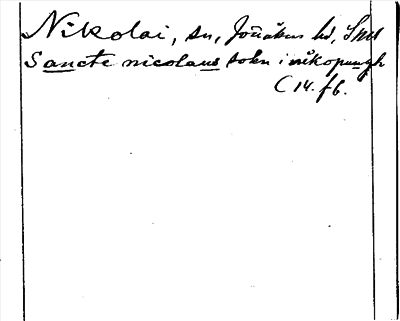 Nikolai, sn, Jönåkers hd, Sml
Sancte nicolaus sokn i nikopungh
C 14. f6.